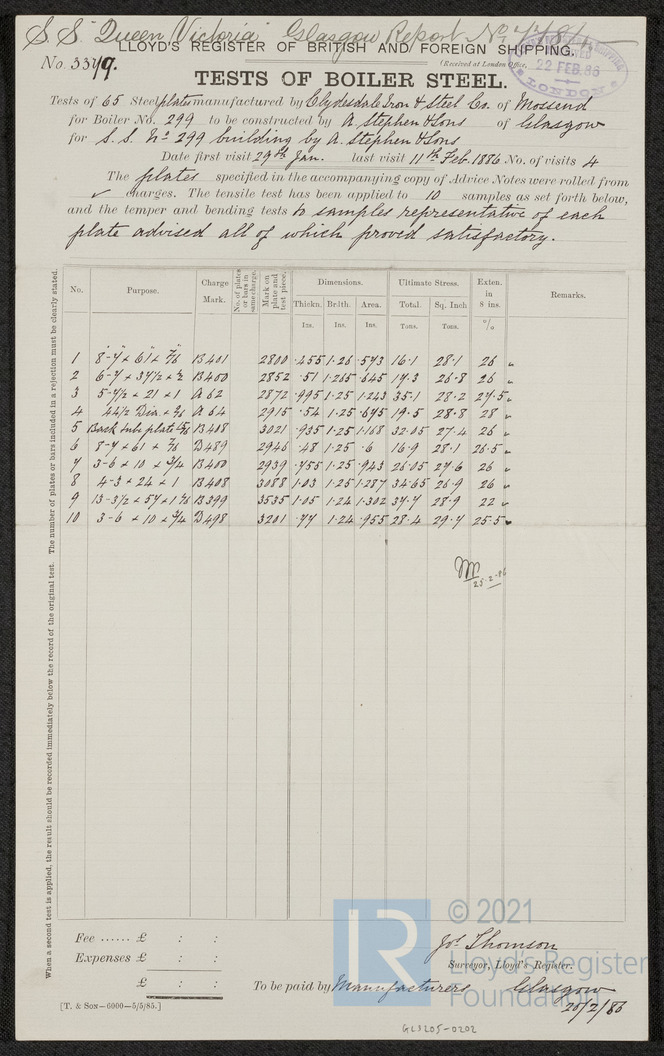 S.S. "Queen Victoria" Glasgow Report No.
LLOYD'S REGISTER OF BRITISH AND FOREIGN SHIPPING.
No. 3379.
(Received at London Office,
22 FEB. 86
LONDON
TESTS OF BOILER STEEL.
Tests of 65 Steel plates manufactured by Clydesdale Iron & Steel Co. of Mossend
for Boiler No. 299 to be constructed by A. Stephen & Sons of Glasgow
for S.S. No. 299 building by A. Stephen & Sons
Date first visit 29th Jan. last visit 11th Feb. 1886 No. of visits 4
The plates specified in the accompanying copy of Advice Notes were rolled from
✓ charges. The tensile test has been applied to 10 samples as set forth below,
and the temper and bending tests to samples representative of each
plate advised all of which proved satisfactory.
When a second test is applied, the result should be recorded immediately below the record of the original test. The number of plates or bars included in a rejection must be clearly stated.
No. Purpose. Charge Mark. No. of plates or bars in same charge. Mark on plate and test piece. Dimensions. Ultimate Stress. Exten. in 8 ins. Remarks.
Thickn. Br'dth. Area. Total. Sq. Inch
Ins. Ins. Ins. Tons. Tons. %
1 8-7 × 61 × 7/16 B401 2800 .455 1.26 .573 16.1 28.1 26 "
2 6-7 × 37 1/2 × 1/2 B400 2852 .51 1.265 .645 17.3 26.8 26 "
3 5-7 1/2 × 21 × 1 A62 2872 .995 1.25 1.243 35.1 28.2 27.5 "
4 44 1/2 Dia. A64 2915 .54 1.25 .675 19.5 28.8 28 "
5 Back tube plate B408 3021 .935 1.25 1.168 32.05 27.4 26 "
6 8-7 × 61 × 7/16 B489 2946 .48 1.25 .6 16.9 28.1 26.5 "
7 3-6 × 10 × 3/4 B400 2939 .755 1.25 .943 26.05 27.6 26 "
8 4-3 × 24 × 1 B408 3088 1.03 1.25 1.287 34.65 26.9 26 "
9 13-3 1/2 × 57 × 1 1/16 B399 3535 1.05 1.24 1.302 37.7 28.9 22 "
10 3-6 × 10 × 3/4 B498 3201 .77 1.24 .955 28.4 29.7 25.5 "
25.2.86
Fee ...... £ : :
Expenses £ : :
£ : :
[T. & SON—6000—5/5/85.]
LR © 2021
Lloyd's Register
Foundation
Jos. Thomson
Surveyor, Lloyd's Register.
To be paid by Manufacturers Glasgow
20/2/86
GLS205-0202